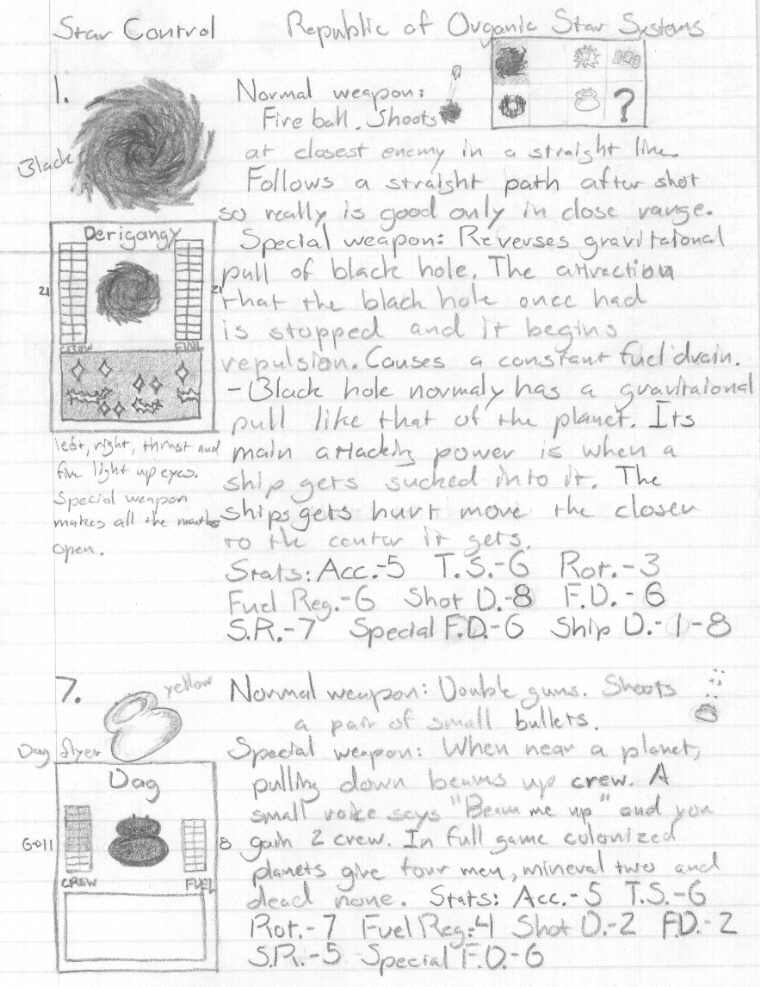 Star Control Republic of Organic Star Systems
1.
Black
Normal weapon:
Fire ball. Shoots
?
at closest enemy in a straight line.
Follows a straight path after shot
so really is good only in close range.
Derigangy
21 21
CREW FUEL
left, right, thrust and
fire light up eyes.
Special weapon
makes all the mouths
open.
Special weapon: Reverses gravitaional
pull of black hole. The attraction
that the black hole once had
is stopped and it begins
repulsion. Causes a constant fuel drain.
- Black hole normaly has a gravitaional
pull like that of the planet. Its
main attacking power is when a
ship gets sucked into it. The
ships gets hurt more the closer
to the center it gets.
Stats: Acc.-5 T.S.-6 Rot.-3
Fuel Reg.-6 Shot D.-8 F.D.-6
S.R.-7 Special F.D.-6 Ship D.-1-8
7.
yellow
Dag flyer
Dag
6-11 8
CREW FUEL
Normal weapon: Double guns. Shoots
a pair of small bullets.
Special weapon: When near a planet,
pulling down beams up crew. A
small voice says "Beam me up" and you
gain 2 crew. In full game colonized
planets give four men, mineral two and
dead none. Stats: Acc.-5 T.S.-6
Rot.-7 Fuel Reg.-4 Shot D.-2 F.D.-2
S.R.-5 Special F.D.-6